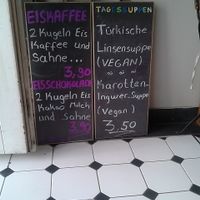 EISKAFFEE
2 Kugeln Eis
Kaffee und
Sahne...
3,90
EISSCHOKOLADE
2 Kugeln Eis
Kakao Milch
und Sahne
3.90
TAGESSUPPEN
Türkische
Linsensuppe
(VEGAN)
Karotten-
Ingwer-Suppe
(Vegan)
3,50